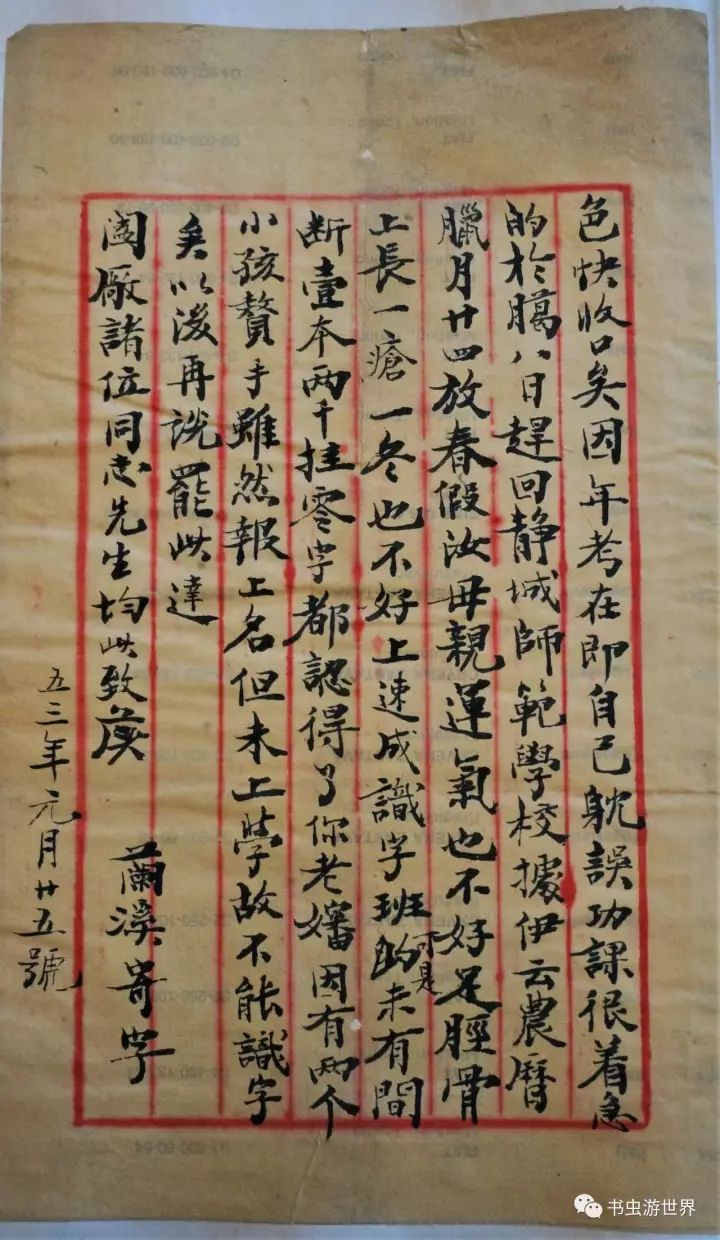 色快收口矣因年考在即自己躭誤功課很着急
的於臈八日趕回静城師範學校據伊云農曆
臘月廿四放春假汝毋親運氣也不好足脛骨
上長一瘡一冬也不好上速成識字班的可是未有間
断壹本两千挂零字都認得了你老嬸因有两个
小孩贅手雖然報上名但未上學故不能識字
矣以後再说罷此達
阖廠諸位同志先生均此致候
蘭溪寄字
五三年元月廿五號
书虫游世界